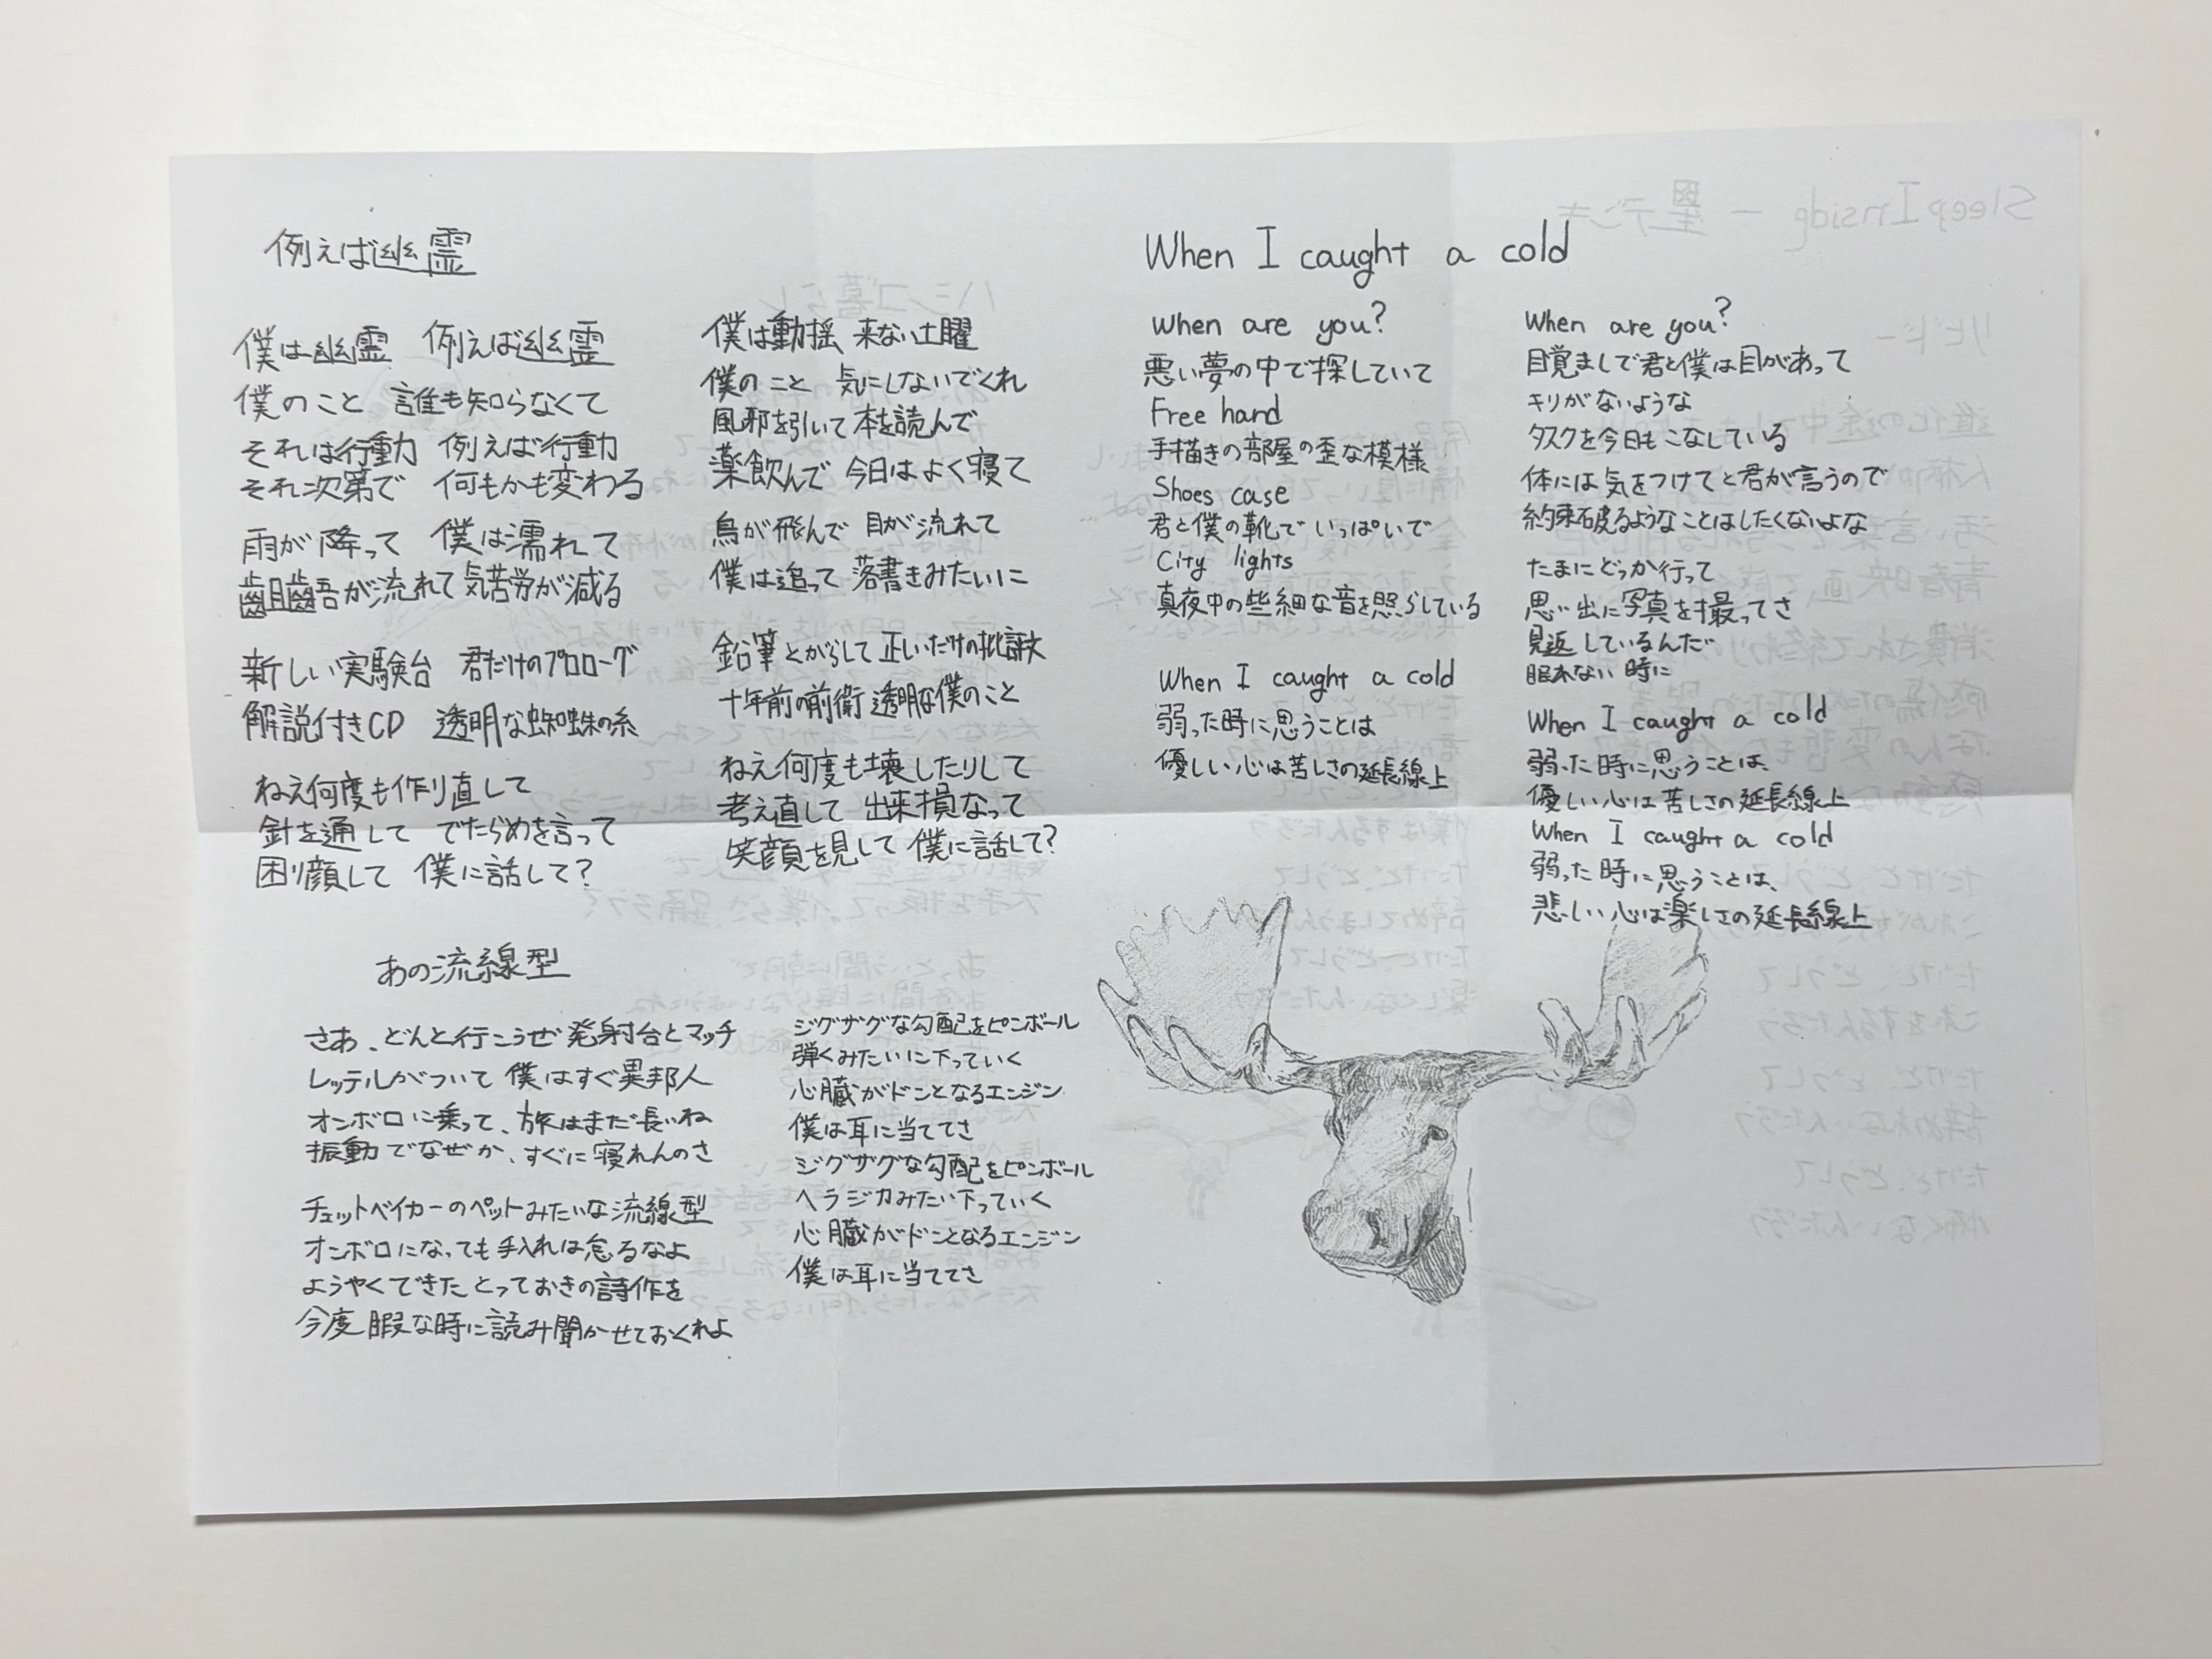 例えば幽霊
僕は幽霊 例えば幽霊
僕のこと 誰も知らなくて
それは行動 例えば行動
それ次第で 何もかも変わる
雨が降って 僕は濡れて
齟齬が流れて 気苦労が減る
新しい実験台 君だけのプロローグ
解説付きCD 透明な蜘蛛の糸
ねえ何度も作り直して
針を通して でたらめを言って
困り顔して 僕に話して?
僕は動揺 来ない土曜
僕のこと 気にしないでくれ
風邪を引いて 本を読んで
薬飲んで 今日はよく寝て
鳥が飛んで 目が流れて
僕は追って 落書きみたいに
鉛筆とがらして 正しいだけの批評文
十年前の前衛 透明な僕のこと
ねえ何度も壊したりして
考え直して 出来損なって
笑顔を見して 僕に話して?
あの流線型
さあ、どんと行こうぜ 発射台とマッチ
レッテルがついて 僕はすぐ異邦人
オンボロに乗って、旅はまだ長いね
振動でなぜか、すぐに寝れんのさ
チェットベイカーのペットみたいな流線型
オンボロになっても手入れは怠るなよ
ようやくできた とっておきの詩作を
今度暇な時に読み聞かせておくれよ
ジグザグな勾配をピンボール
弾くみたいに下っていく
心臓がドンとなるエンジン
僕は耳に当ててさ
ジグザグな勾配をピンボール
ヘラジカみたい下っていく
心臓がドンとなるエンジン
僕は耳に当ててさ
When I caught a cold
When are you?
悪い夢の中で探していて
Free hand
手描きの部屋の歪な模様
Shoes case
君と僕の靴で いっぱいで
City lights
真夜中の些細な音を照らしている
When I caught a cold
弱った時に思うことは
優しい心は苦しさの延長線上
When are you?
目覚ましで君と僕は目があって
キリがないような
タスクを今日もこなしている
体には気をつけてと君が言うので
約束破るようなことはしたくないよな
たまにどっか行って
思い出に写真を撮ってさ
見返しているんだ
眠れない時に
When I caught a cold
弱った時に思うことは、
優しい心は苦しさの延長線上
When I caught a cold
弱った時に思うことは、
悲しい心は楽しさの延長線上